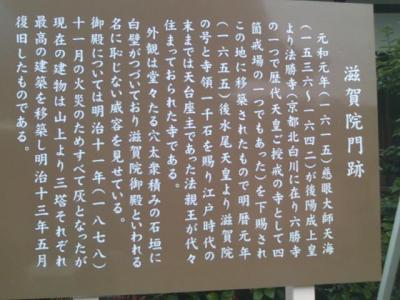 滋賀院門跡
元和元年（一六一五）慈眼大師天海
（一五三六～一六四三）が後陽成上皇
より法勝寺（京都北白川に在り六勝寺
の一つで歴代天皇ご授戒の寺として四
箇戒場の一つでもあった）を下賜され
この地に移築されたもので明暦元年
（一六五五）後水尾天皇より滋賀院
の号と寺領一千石を賜り江戸時代の
末までは天台座主であった法親王が代々
住まわれた寺である。
外観は堂々たる穴太衆積みの石垣に
白壁がつづいており滋賀院御殿といわれる
名に恥じない威容を見せている。
御殿については明治十一年（一八七八）
十一月の火災のためすべて灰となったが
現在の建物は山上より三塔それぞれ
最高の建築を移築し明治十三年五月
復旧したものである。